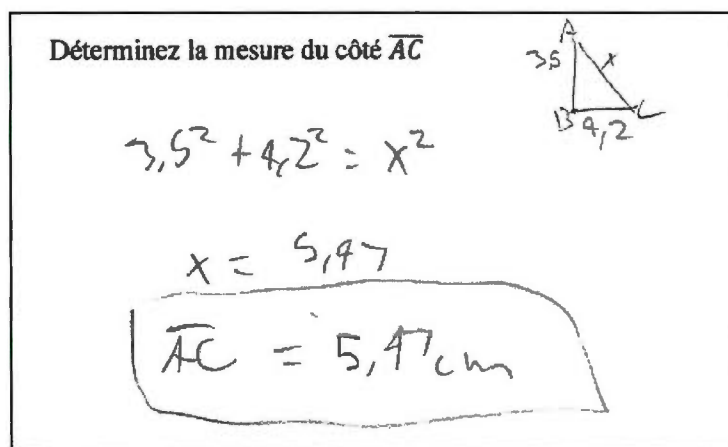 Déterminez la mesure du côté AC
A
3,5
x
B
4,2
C
3,5² + 4,2² = x²
x = 5,47
AC = 5,47 cm